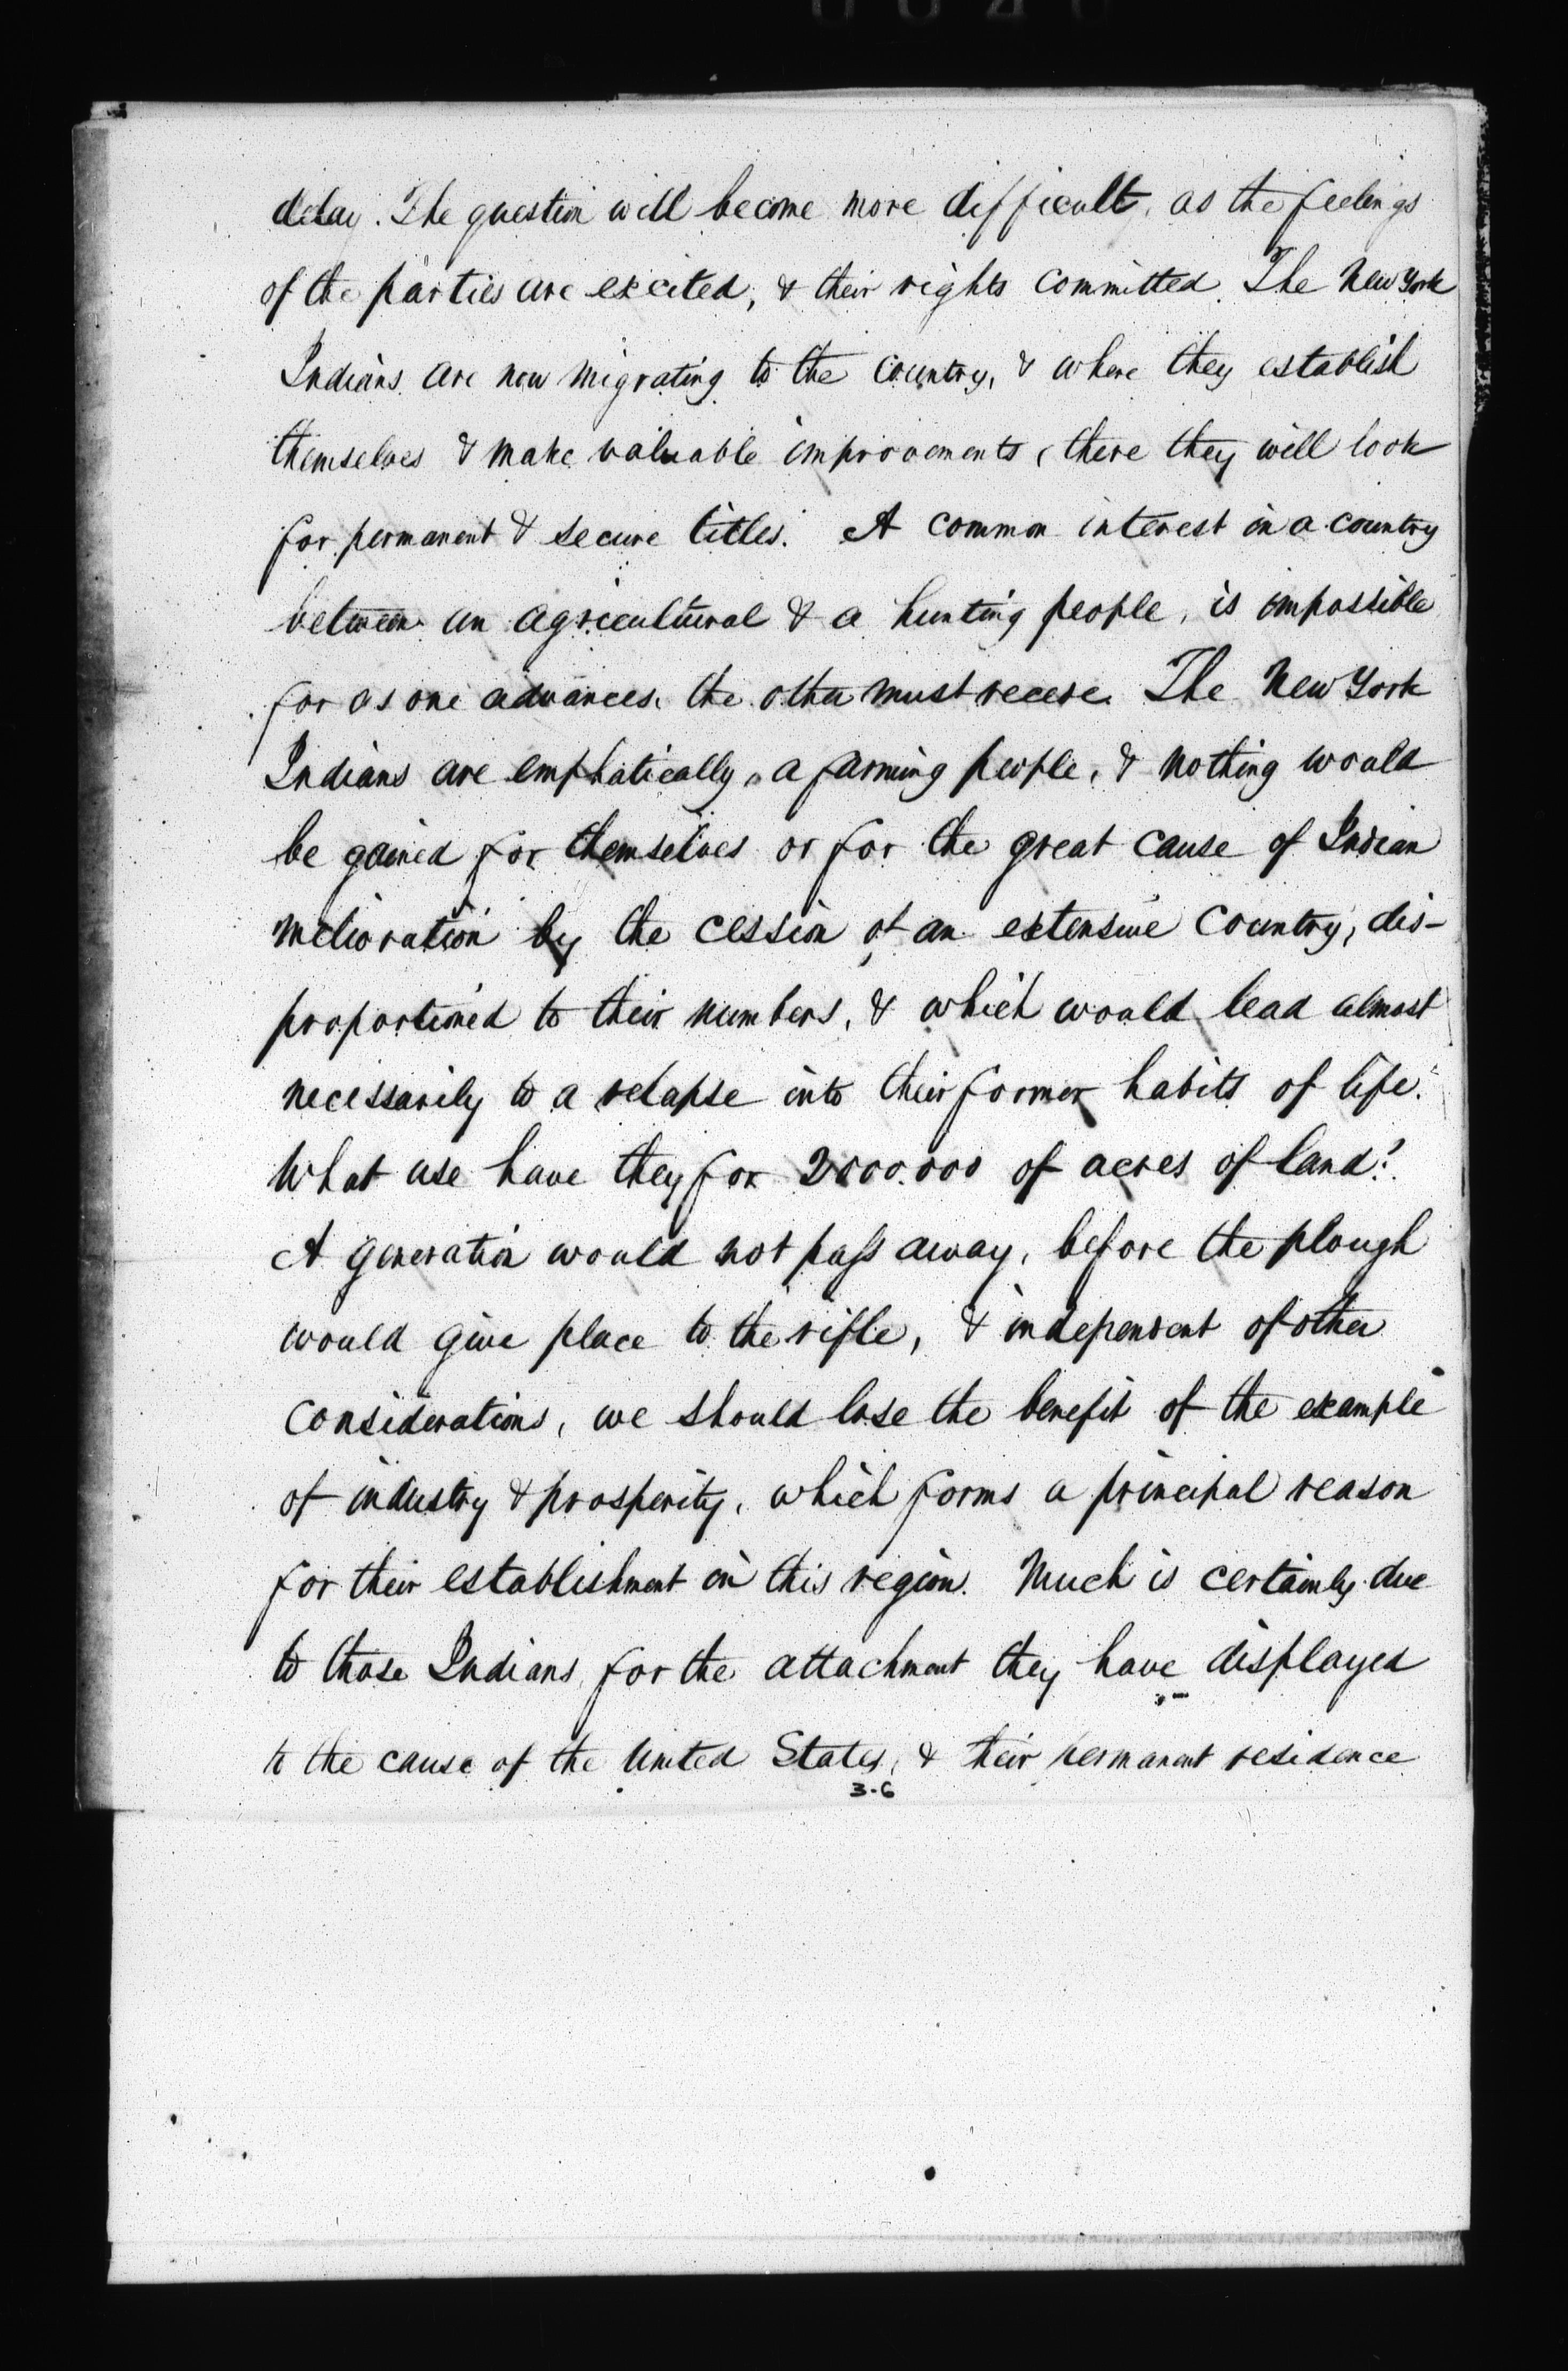 delay. The question will become more difficult, as the feelings
of the parties are excited, & their rights committed. The New York
Indians are now migrating to the country, & where they establish
themselves & make valuable improvements, there they will look
for permanent & secure titles. A common interest in a country
between an agricultural & a hunting people, is impossible
for as one advances, the other must recede. The New York
Indians are emphatically, a farming people, & nothing would
be gained for themselves or for the great cause of Indian
melioration by the cession of an extensive country, dis-
proportioned to their numbers, & which would lead almost
necessarily to a relapse into their former habits of life.
What use have they for 2000.000 of acres of land?
A generation would not pass away, before the plough
would give place to the rifle, & independent of other
considerations, we should lose the benefit of the example
of industry & prosperity, which forms a principal reason
for their establishment in this region. Much is certainly due
to those Indians, for the attachment they have displayed
to the cause of the United States, & their permanent residence
3-6